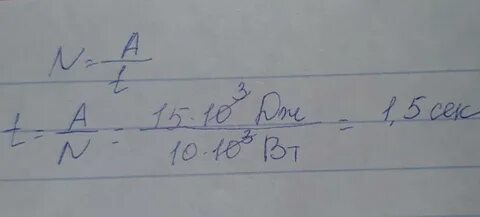 N = A/t
t = A/N = 15·10³ Дж / 10·10³ Вт = 1,5 сек